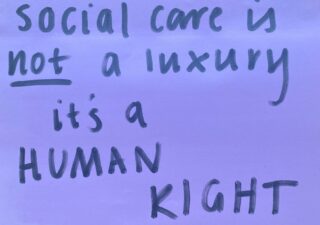 social care is
not a luxury
it's a
HUMAN
RIGHT